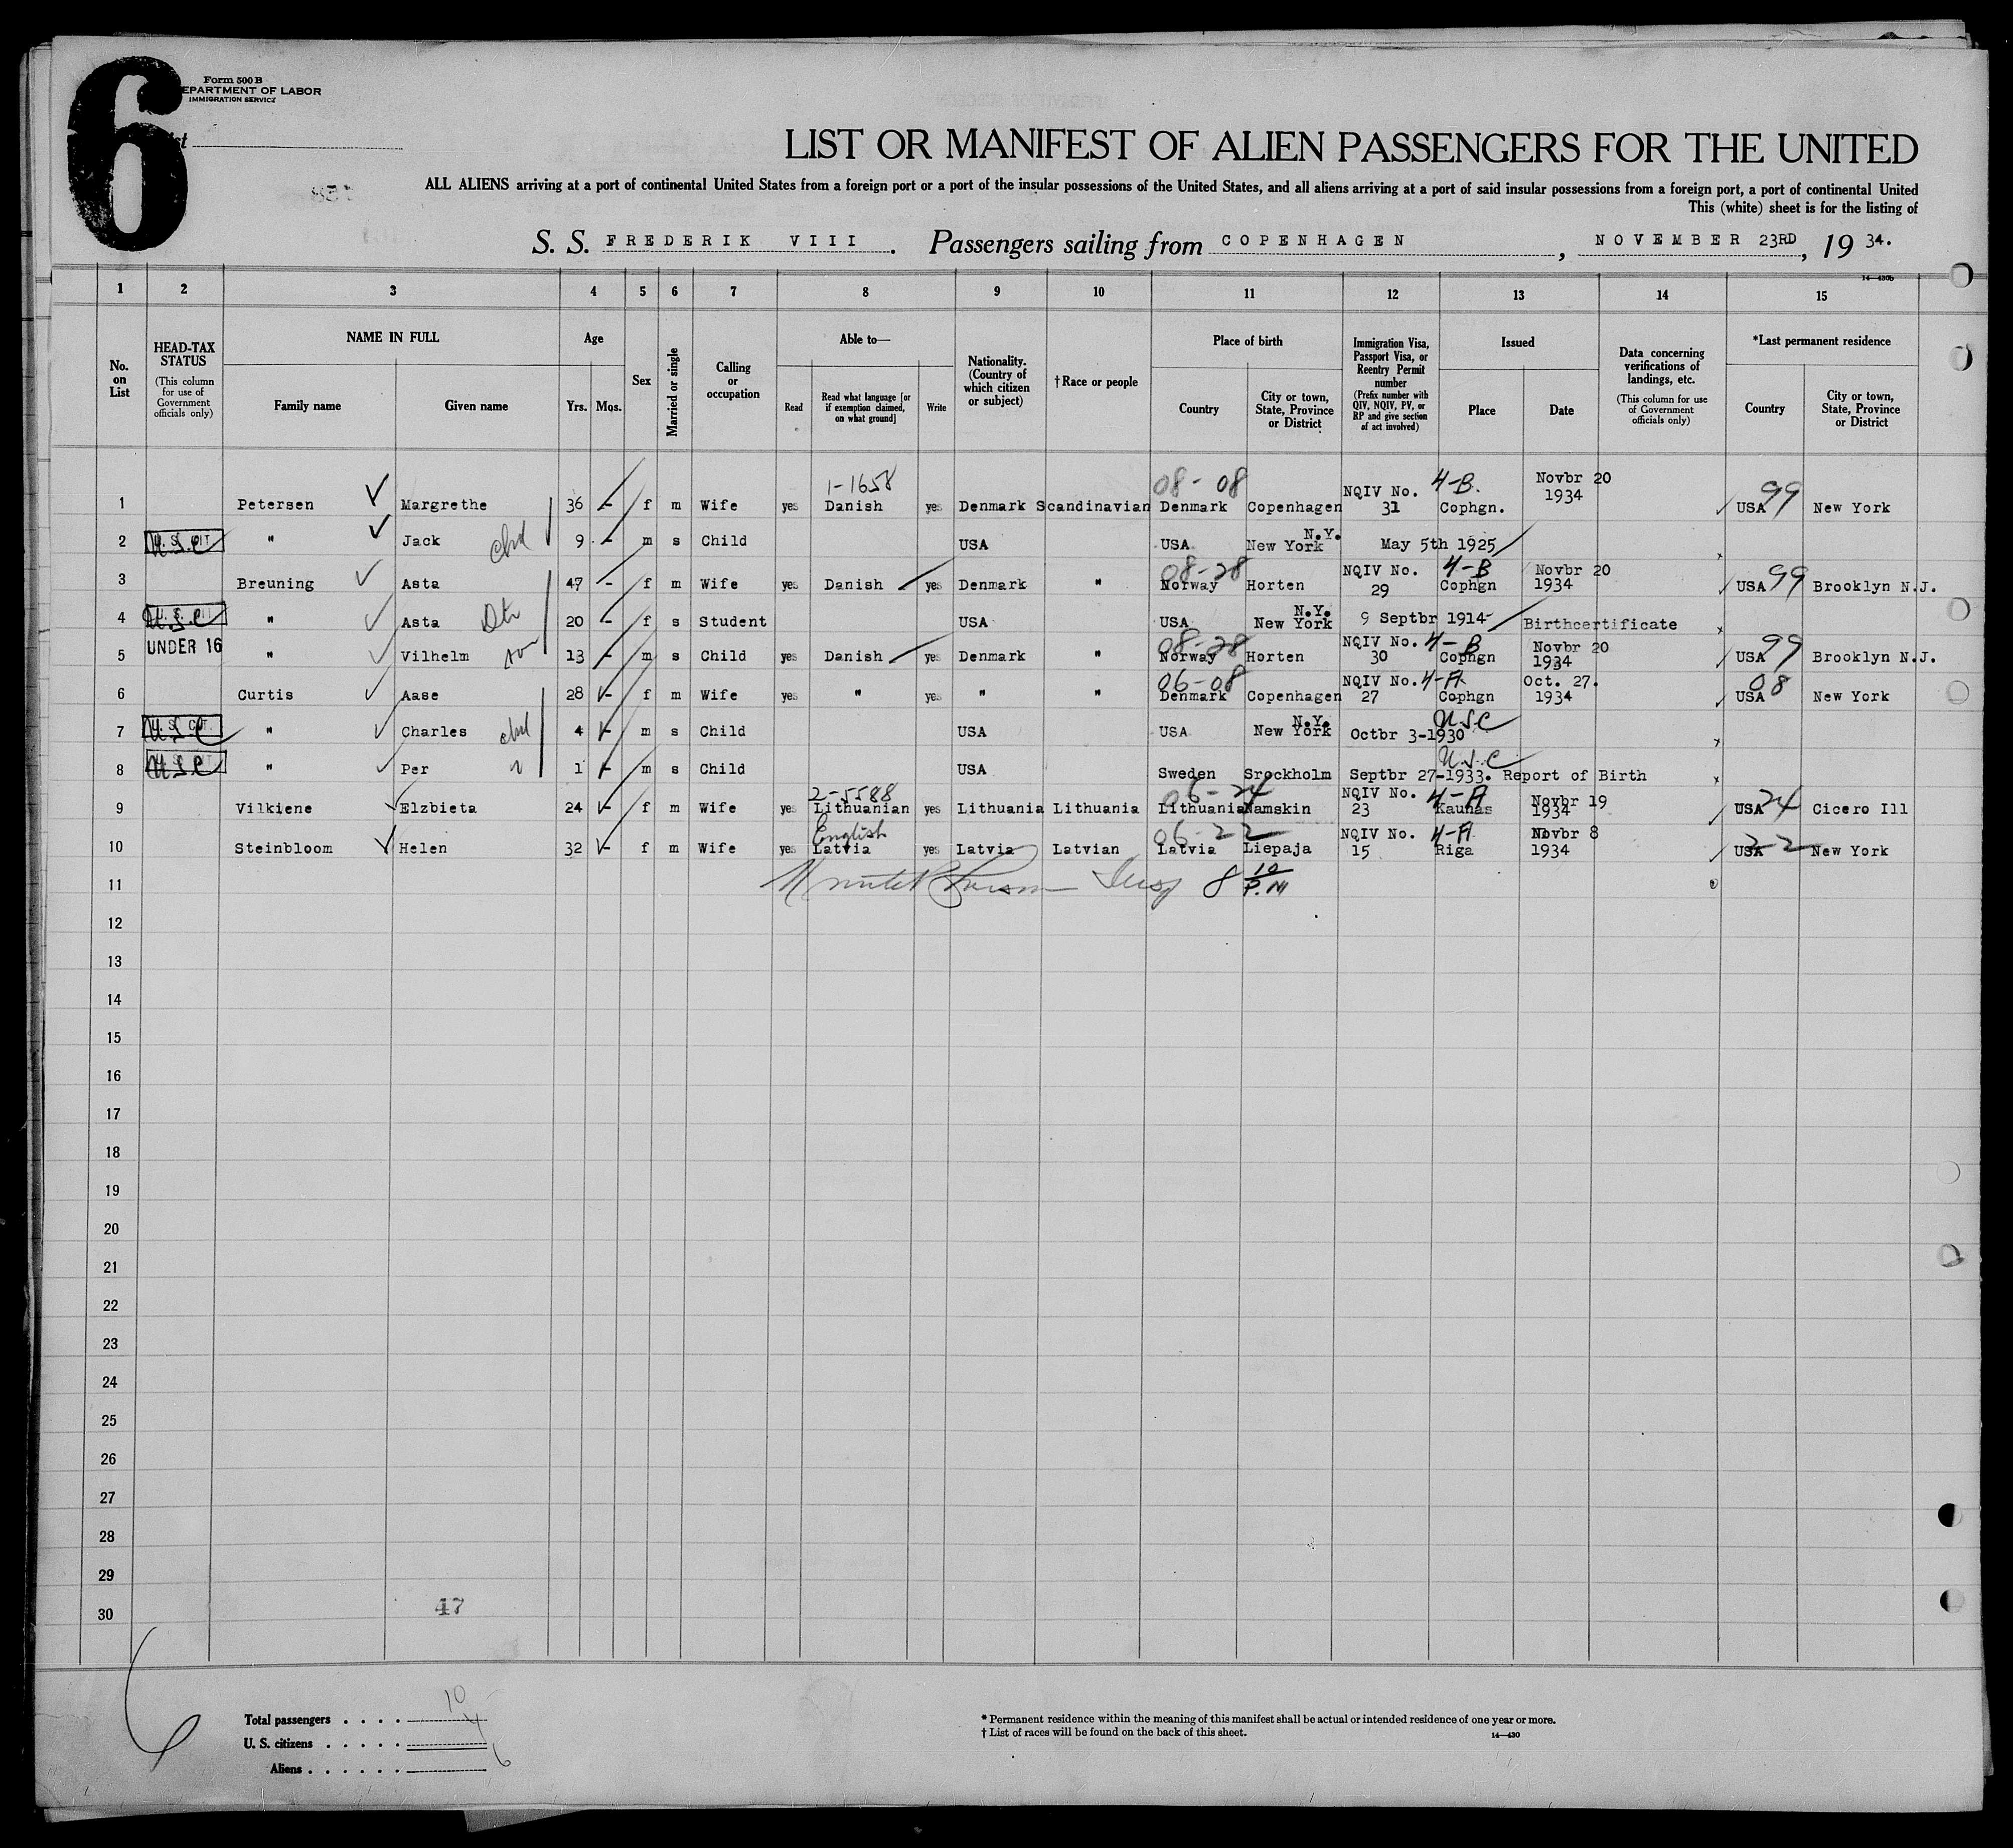 6
Form 500 B
DEPARTMENT OF LABOR
IMMIGRATION SERVICE
LIST OR MANIFEST OF ALIEN PASSENGERS FOR THE UNITED
ALL ALIENS arriving at a port of continental United States from a foreign port or a port of the insular possessions of the United States, and all aliens arriving at a port of said insular possessions from a foreign port, a port of continental United
This (white) sheet is for the listing of
S. S. FREDERIK VIII. Passengers sailing from COPENHAGEN, NOVEMBER 23RD, 19 34.
14—430b
1 2 3 4 5 6 7 8 9 10 11 12 13 14 15
No. on List
HEAD-TAX STATUS (This column for use of Government officials only)
NAME IN FULL
Family name Given name
Age
Yrs. Mos.
Sex
Married or single
Calling or occupation
Able to—
Read
Read what language [or if exemption claimed, on what ground]
Write
Nationality. (Country of which citizen or subject)
†Race or people
Place of birth
Country
City or town, State, Province or District
Immigration Visa, Passport Visa, or Reentry Permit number (Prefix number with QIV, NQIV, PV, or RP and give section of act involved)
Issued
Place Date
Data concerning verifications of landings, etc. (This column for use of Government officials only)
*Last permanent residence
Country
City or town, State, Province or District
1-1658 08-08 4-B. 99
1 Petersen Margrethe 36 - f m Wife yes Danish yes Denmark Scandinavian Denmark Copenhagen NQIV No. 31 Cophgn. Novbr 20 1934 USA New York
2 U.S. CIT. U.S.C " Jack chd 9 - m s Child USA USA New York N.Y. May 5th 1925
08-28 4-B 99
3 Breuning Asta 47 - f m Wife yes Danish yes Denmark " Norway Horten NQIV No. 29 Cophgn Novbr 20 1934 USA Brooklyn N.J.
4 U.S.C " Asta Dtr 20 - f s Student USA USA New York N.Y. 9 Septbr 1914 Birthcertificate
08-28 4-B 99
5 UNDER 16 " Vilhelm son 13 - m s Child yes Danish yes Denmark " Norway Horten NQIV No. 30 Cophgn Novbr 20 1934 USA Brooklyn N.J.
06-08 4-A 08
6 Curtis Aase 28 - f m Wife yes " yes " " Denmark Copenhagen NQIV No. 27 Cophgn Oct. 27. 1934 USA New York
7 U.S. CIT. U.S.C " Charles chd 4 - m s Child USA USA New York N.Y. Octbr 3-1930 U.S.C
8 U.S.C " Per " 1 - m s Child USA Sweden Srockholm Septbr 27-1933. Report of Birth U.S.C
2-5588 06-24 4-A 24
9 Vilkiene Elzbieta 24 - f m Wife yes Lithuanian yes Lithuania Lithuania Lithuania Namskin NQIV No. 23 Kaunas Novbr 19 1934 USA Cicero Ill
English 06-22 4-A 22
10 Steinbloom Helen 32 - f m Wife yes Latvia yes Latvia Latvian Latvia Liepaja NQIV No. 15 Riga Novbr 8 1934 USA New York
11 Insp 8 10 P.M
12
13
14
15
16
17
18
19
20
21
22
23
24
25
26
27
28
29
30
47
Total passengers . . . . 10
U. S. citizens . . . . . 4
Aliens . . . . . . 6
* Permanent residence within the meaning of this manifest shall be actual or intended residence of one year or more.
† List of races will be found on the back of this sheet.
14—430